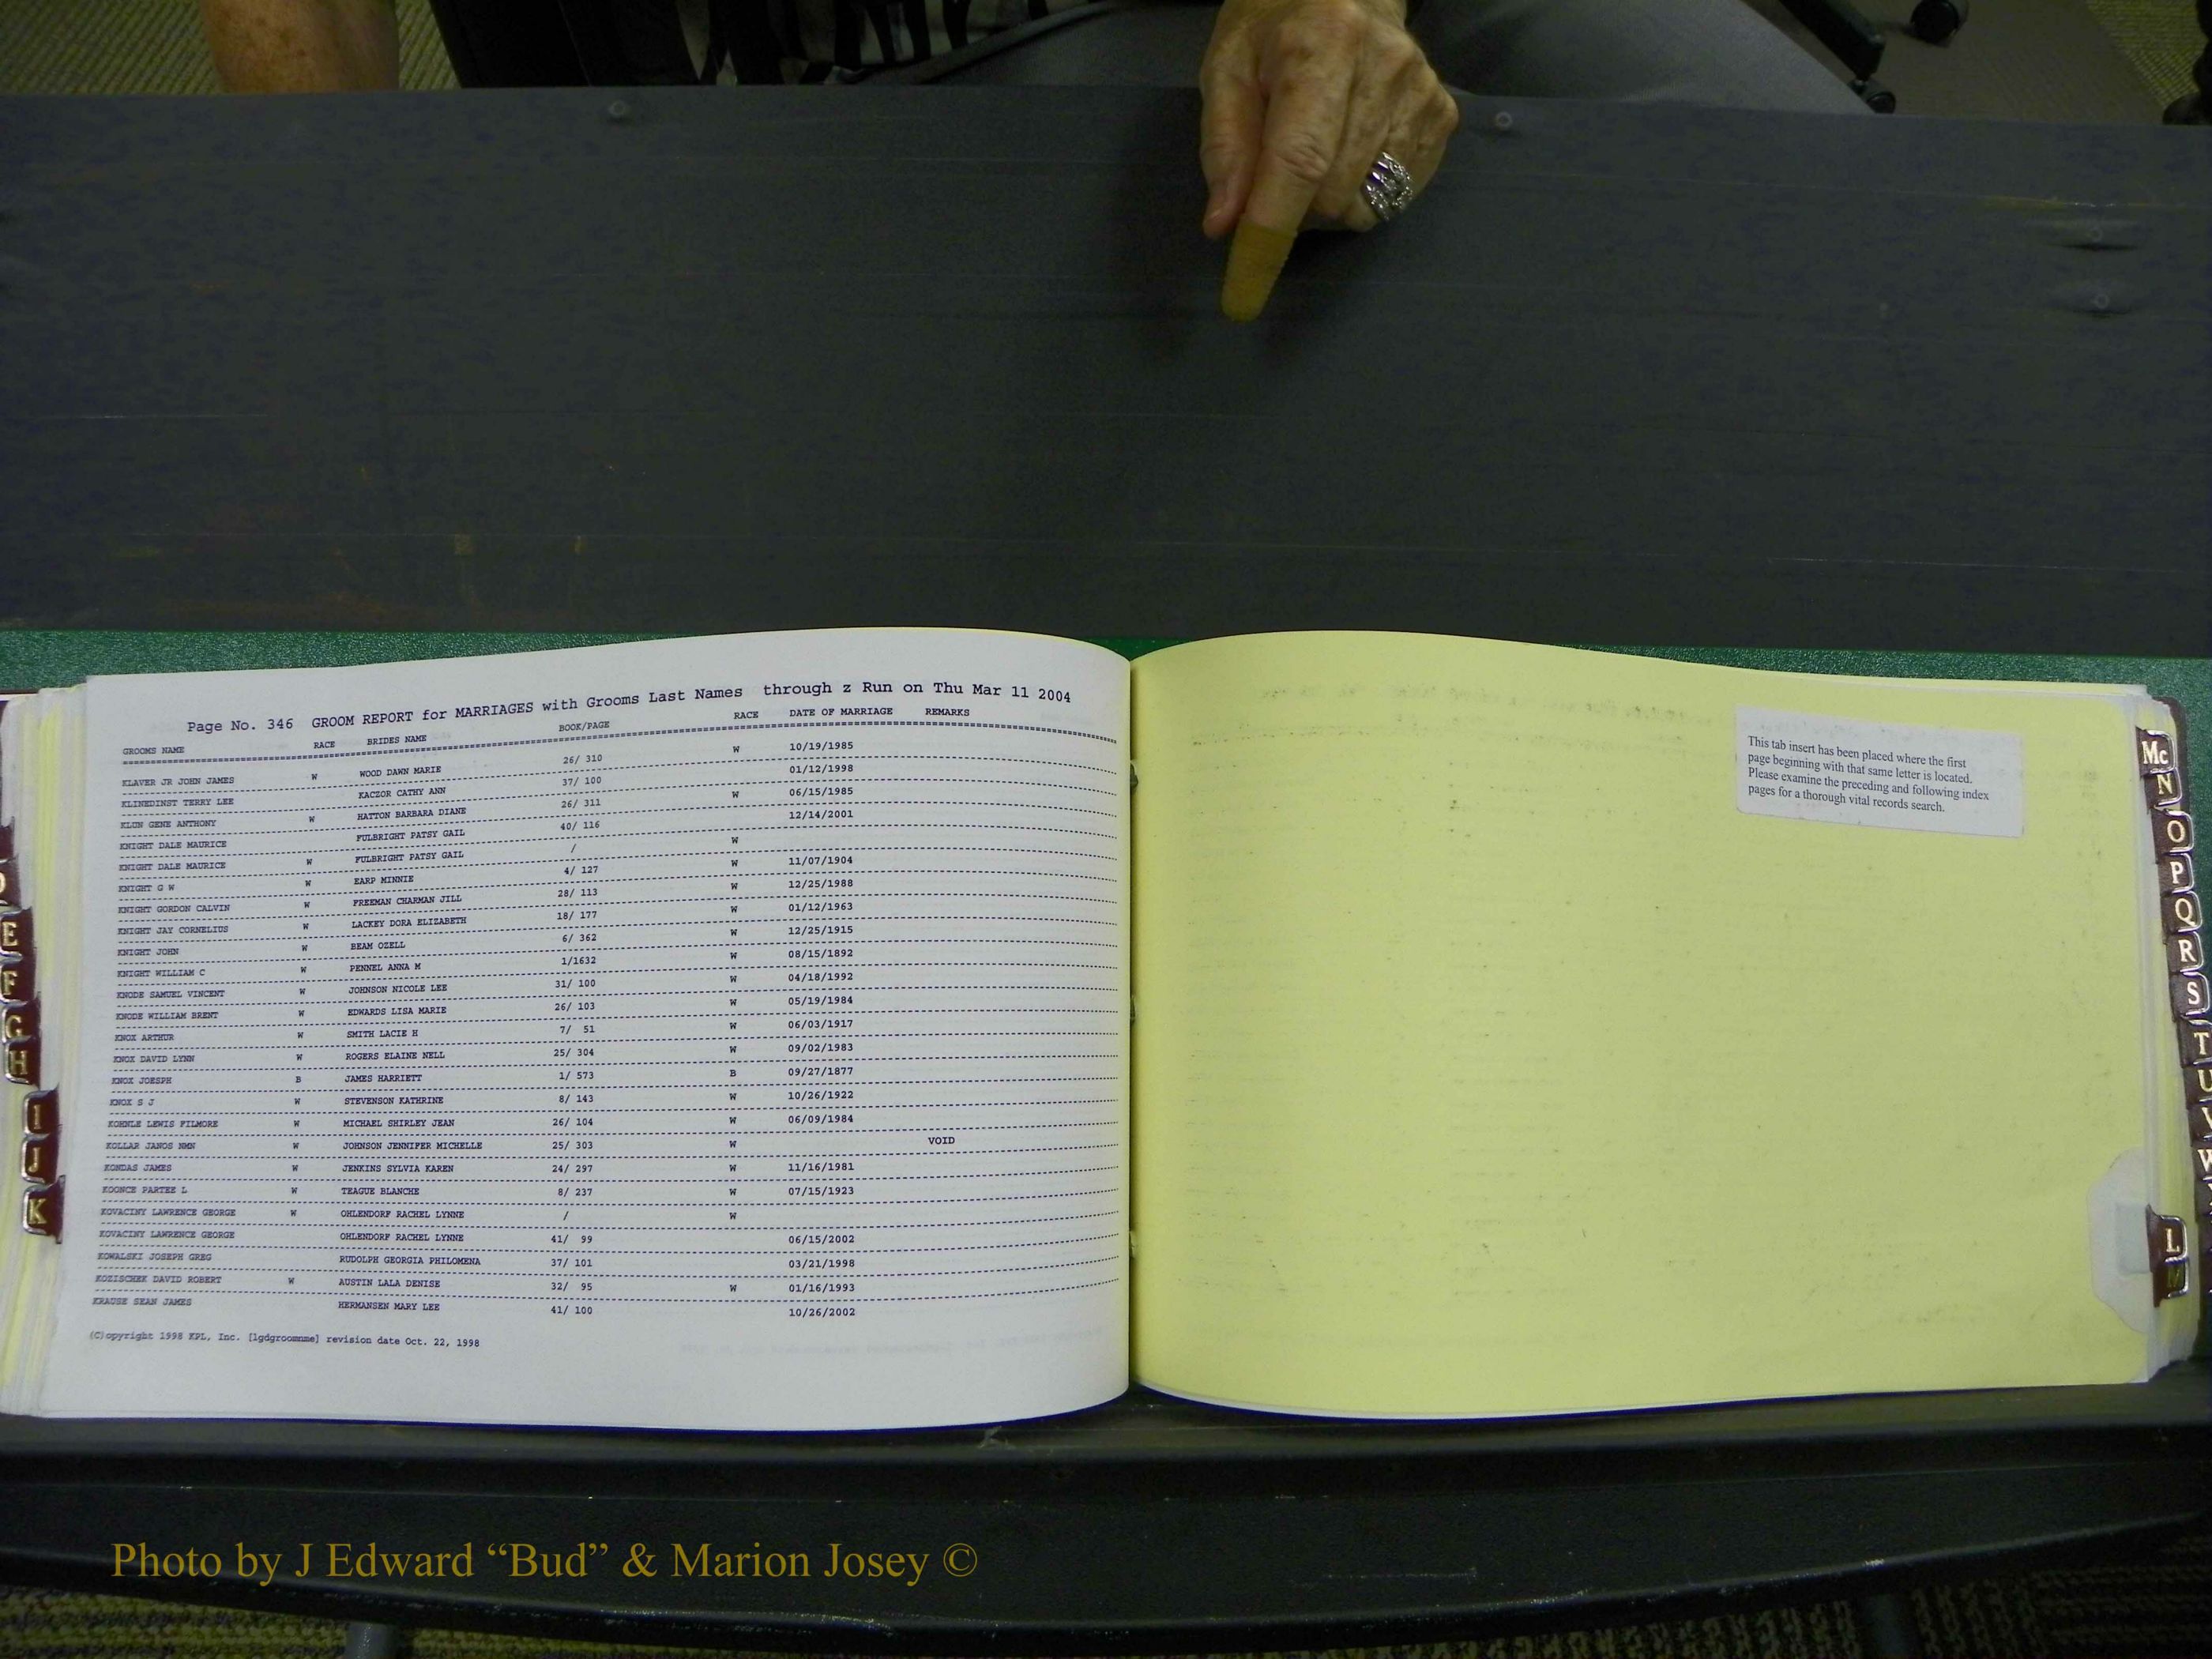 Page No. 346 GROOM REPORT for MARRIAGES with Grooms Last Names through z Run on Thu Mar 11 2004
GROOMS NAME RACE BRIDES NAME BOOK/PAGE RACE DATE OF MARRIAGE REMARKS
KLAVER JR JOHN JAMES W WOOD DAWN MARIE 26/ 310 W 10/19/1985
KLINEDINST TERRY LEE KACZOR CATHY ANN 37/ 100 01/12/1998
KLUN GENE ANTHONY W HATTON BARBARA DIANE 26/ 311 W 06/15/1985
KNIGHT DALE MAURICE FULBRIGHT PATSY GAIL 40/ 116 12/14/2001
KNIGHT DALE MAURICE W FULBRIGHT PATSY GAIL / W
KNIGHT G W W EARP MINNIE 4/ 127 W 11/07/1904
KNIGHT GORDON CALVIN W FREEMAN CHARMAN JILL 28/ 113 W 12/25/1988
KNIGHT JAY CORNELIUS W LACKEY DORA ELIZABETH 18/ 177 W 01/12/1963
KNIGHT JOHN W BEAM OZELL 6/ 362 W 12/25/1915
KNIGHT WILLIAM C W PENNEL ANNA M 1/1632 W 08/15/1892
KNODE SAMUEL VINCENT W JOHNSON NICOLE LEE 31/ 100 W 04/18/1992
KNODE WILLIAM BRENT W EDWARDS LISA MARIE 26/ 103 W 05/19/1984
KNOX ARTHUR W SMITH LACIE H 7/ 51 W 06/03/1917
KNOX DAVID LYNN W ROGERS ELAINE NELL 25/ 304 W 09/02/1983
KNOX JOESPH B JAMES HARRIETT 1/ 573 B 09/27/1877
KNOX S J W STEVENSON KATHRINE 8/ 143 W 10/26/1922
KOHNLE LEWIS FILMORE W MICHAEL SHIRLEY JEAN 26/ 104 W 06/09/1984
KOLLAR JANOS NMN W JOHNSON JENNIFER MICHELLE 25/ 303 W VOID
KONDAS JAMES W JENKINS SYLVIA KAREN 24/ 297 W 11/16/1981
KOONCE PARTEE L W TEAGUE BLANCHE 8/ 237 W 07/15/1923
KOVACINY LAWRENCE GEORGE W OHLENDORF RACHEL LYNNE / W
KOVACINY LAWRENCE GEORGE OHLENDORF RACHEL LYNNE 41/ 99 06/15/2002
KOWALSKI JOSEPH GREG RUDOLPH GEORGIA PHILOMENA 37/ 101 03/21/1998
KOZISCHEK DAVID ROBERT W AUSTIN LALA DENISE 32/ 95 W 01/16/1993
KRAUSE SEAN JAMES HERMANSEN MARY LEE 41/ 100 10/26/2002
(C)opyright 1998 KPL, Inc. [lgdgroomnme] revision date Oct. 22, 1998
This tab insert has been placed where the first
page beginning with that same letter is located.
Please examine the preceding and following index
pages for a thorough vital records search.
E
F
G
H
I
J
K
Mc
N
O
P
Q
R
S
T
U
V
W
L
M
Photo by J Edward “Bud” & Marion Josey ©